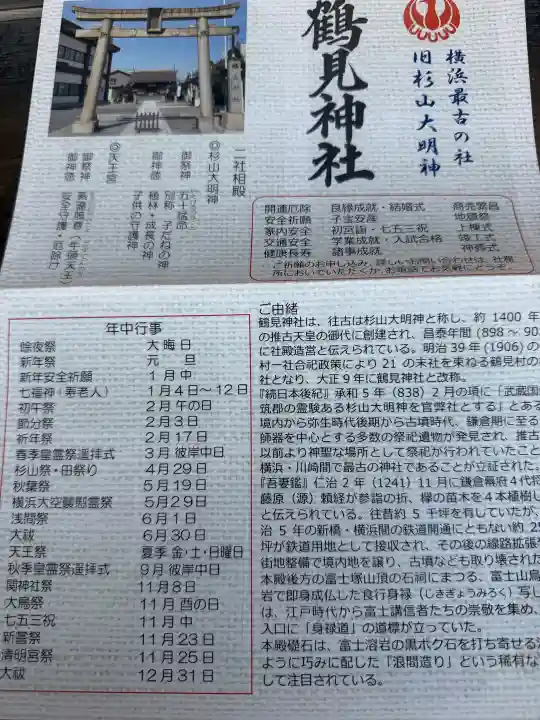 横浜最古の社
旧杉山大明神
鶴見神社
二社相殿
◎杉山大明神
御祭神 五十猛命
別称 子だねの神
御神徳 植林・成長の神
子供の守護神
◎天王宮
御祭神 素盞嗚尊・牛頭天王
御神徳 安全守護・厄除け
開運厄除 良縁成就・結婚式 商売繁昌
安全祈願 子宝安産 地鎮祭
家内安全 初宮詣・七五三祝 上棟式
交通安全 学業成就・入試合格 竣工式
健康長寿 諸事成就 神葬式
ご祈願のお申し込み、詳しいお問い合わせは、社務
所においていただくか、お電話でお気軽にどうぞ
年中行事
除夜祭 大晦日
新年祭 元旦
新年安全祈願 1月中
七福神(寿老人) 1月4日〜12日
初午祭 2月午の日
節分祭 2月3日
祈年祭 2月17日
春季皇霊祭遥拝式 3月彼岸中日
杉山祭・田祭り 4月29日
秋葉祭 5月19日
横浜大空襲慰霊祭 5月29日
浅間祭 6月1日
大祓 6月30日
天王祭 夏季 金・土・日曜日
秋季皇霊祭遥拝式 9月彼岸中日
関神社祭 11月8日
大鳥祭 11月酉の日
七五三祝 11月中
新嘗祭 11月23日
清明宮祭 11月25日
大祓 12月31日
ご由緒
鶴見神社は、往古は杉山大明神と称し、約 1400 年
の推古天皇の御代に創建され、昌泰年間(898〜90
に社殿造営と伝えられている。明治39年(1906)の
村一社合祀政策により21の末社を束ねる鶴見村の
社となり、大正9年に鶴見神社と改称。
『続日本後紀』承和5年(838)2月の頃に「武蔵国
筑郡の霊験ある杉山大明神を官弊社とする」とある
境内から弥生時代後期から古墳時代、鎌倉期に至る
師器を中心とする多数の祭祀遺物が発見され、推古
以前より神聖な場所として祭祀が行われていたこと
横浜・川崎間で最古の神社であることが立証された。
『吾妻鑑』仁治2年(1241)11月に鎌倉幕府4代将
藤原(源)頼経が参詣の折、欅の苗木を4本植樹し
と伝えられている。往昔約5千坪を有していたが、
治5年の新橋・横浜間の鉄道開通にともない約25
坪が鉄道用地として接収され、その後の線路拡張
街地整備で境内地を譲り、古墳なども取り壊された
本殿後方の富士塚山頂の石祠にまつる、富士山烏
岩で即身成仏した食行身禄(じきぎょうみろく)写し
は、江戸時代から富士講信者たちの崇敬を集め、
入口に「身禄道」の道標が立っていた。
本殿礎石は、富士溶岩の黒ボク石を打ち寄せる
ように巧みに配した「浪間造り」という稀有な
して注目されている。